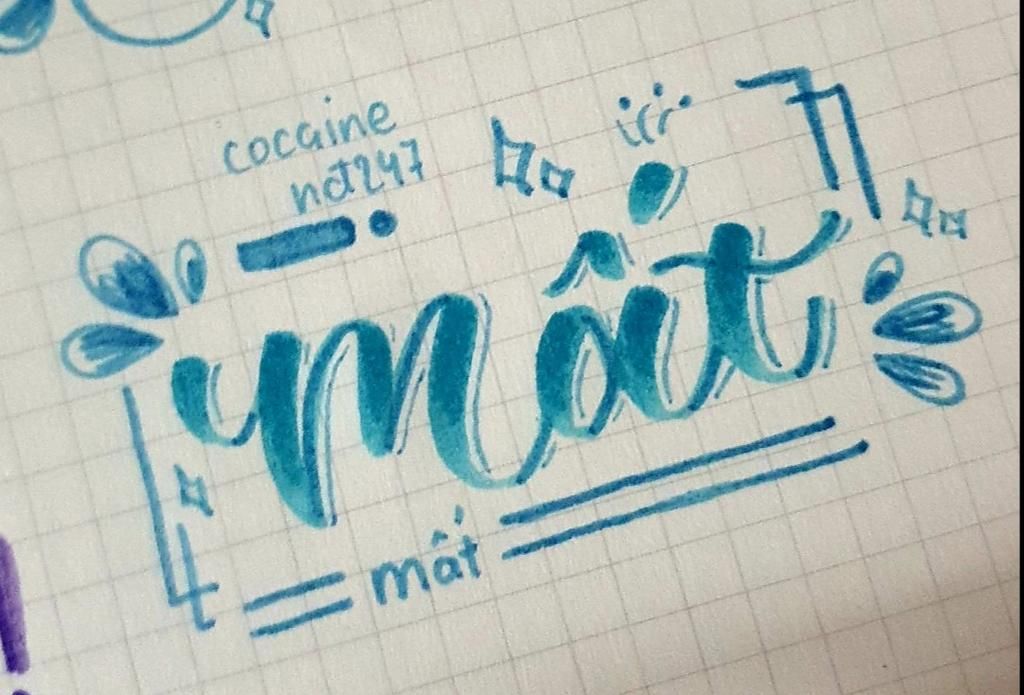 cocaine
nct247
mất
mất